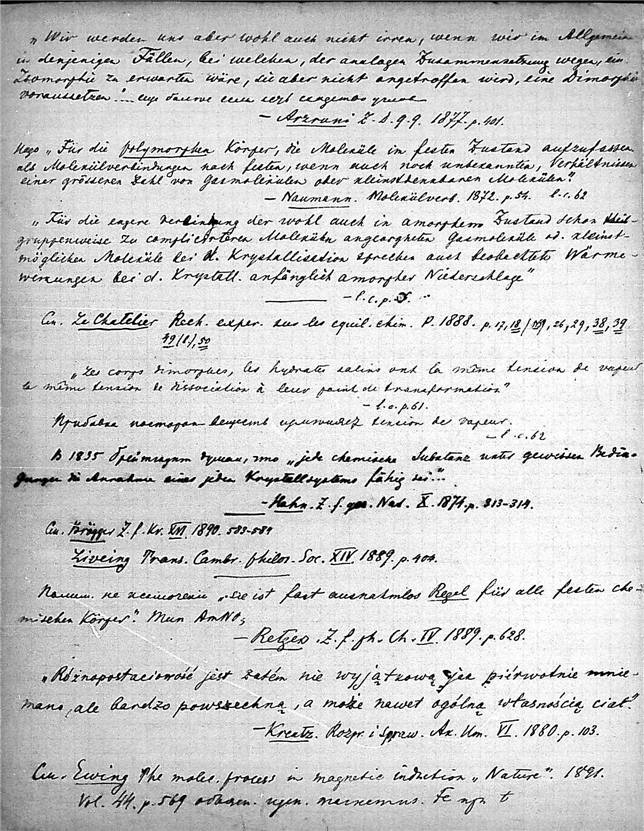 „Wir werden uns aber wohl auch nicht irren, wenn wir im Allgemein
in denjenigen Fällen, bei welchen, der analogen Zusammensetzung wegen, ein
Isomorphie zu erwarten wäre, sie aber nicht angetroffen wird, eine Dimorphie
voraussetzen“
— Arzruni Z. D. g. G. 1877. p. 401.
„Für die polymorphen Körper, die Moleküle in festen Zustand aufzufassen
als Molekülverbindungen nach festen, wenn auch noch unbekannten, Verhältnissen
einer grösseren Zahl von Gasmolekülen oder kleinstdenkbaren Molekülen“.
— Naumann. Molekülverb. 1872. p. 54. l. c. 62
„Für die engere Verbindung der wohl auch in amorphem Zustand schon
gruppenweise zu complicirteren Molekülen angeordneten Gasmoleküle od. kleinst-
möglichen Moleküle bei d. Krystallisation sprechen auch beobachtete Wärme-
wirkungen bei d. Krystall. anfänglich amorpher Niederschläge“
— l. c. p.
См. Le Chatelier Rech. exper. sur les equil. chim. P. 1888. p. 17, 18, 26, 29, 38, 39
50
„Les corps dimorphes, les hydrates salins ont la même tension de vapeur
la même tension de dissociation à leur point de transformation“
— l. c. p. 61.
Прибавка посторон. веществ tension de vapeur.
— l. c. 62
В 1835 думал, что „jede chemische Substanz unter gewissen Bedin-
gungen die Annahme eines jeden Krystallsystems fähig sei“..
— Hahn. Z. f. ges. Nat. X. 1874. p. 313-314.
См. Brögger Z. f. Kr. XVI 1890.
Liveing Trans. Cambr. philos. Soc. XIV 1889. p. 404.
„Sie ist fast ausnahmlos Regel für alle festen che-
mischen Körper“.
— Retgers. Z. f. ph. Ch. IV. 1889. p. 628.
„Różnopostaciowość jest zatém nie wyjątkową jak piérwotnie mnie-
mano, ale bardzo powszechną, a może nawet ogólną własnością ciał.“
— Kreutz. Rozpr. i Spraw. Ak. Um. VI. 1880. p. 103.
См. Ewing The molec. process in magnetic induction „Nature“. 1891.
Vol. 44. p. 569 Fe при t